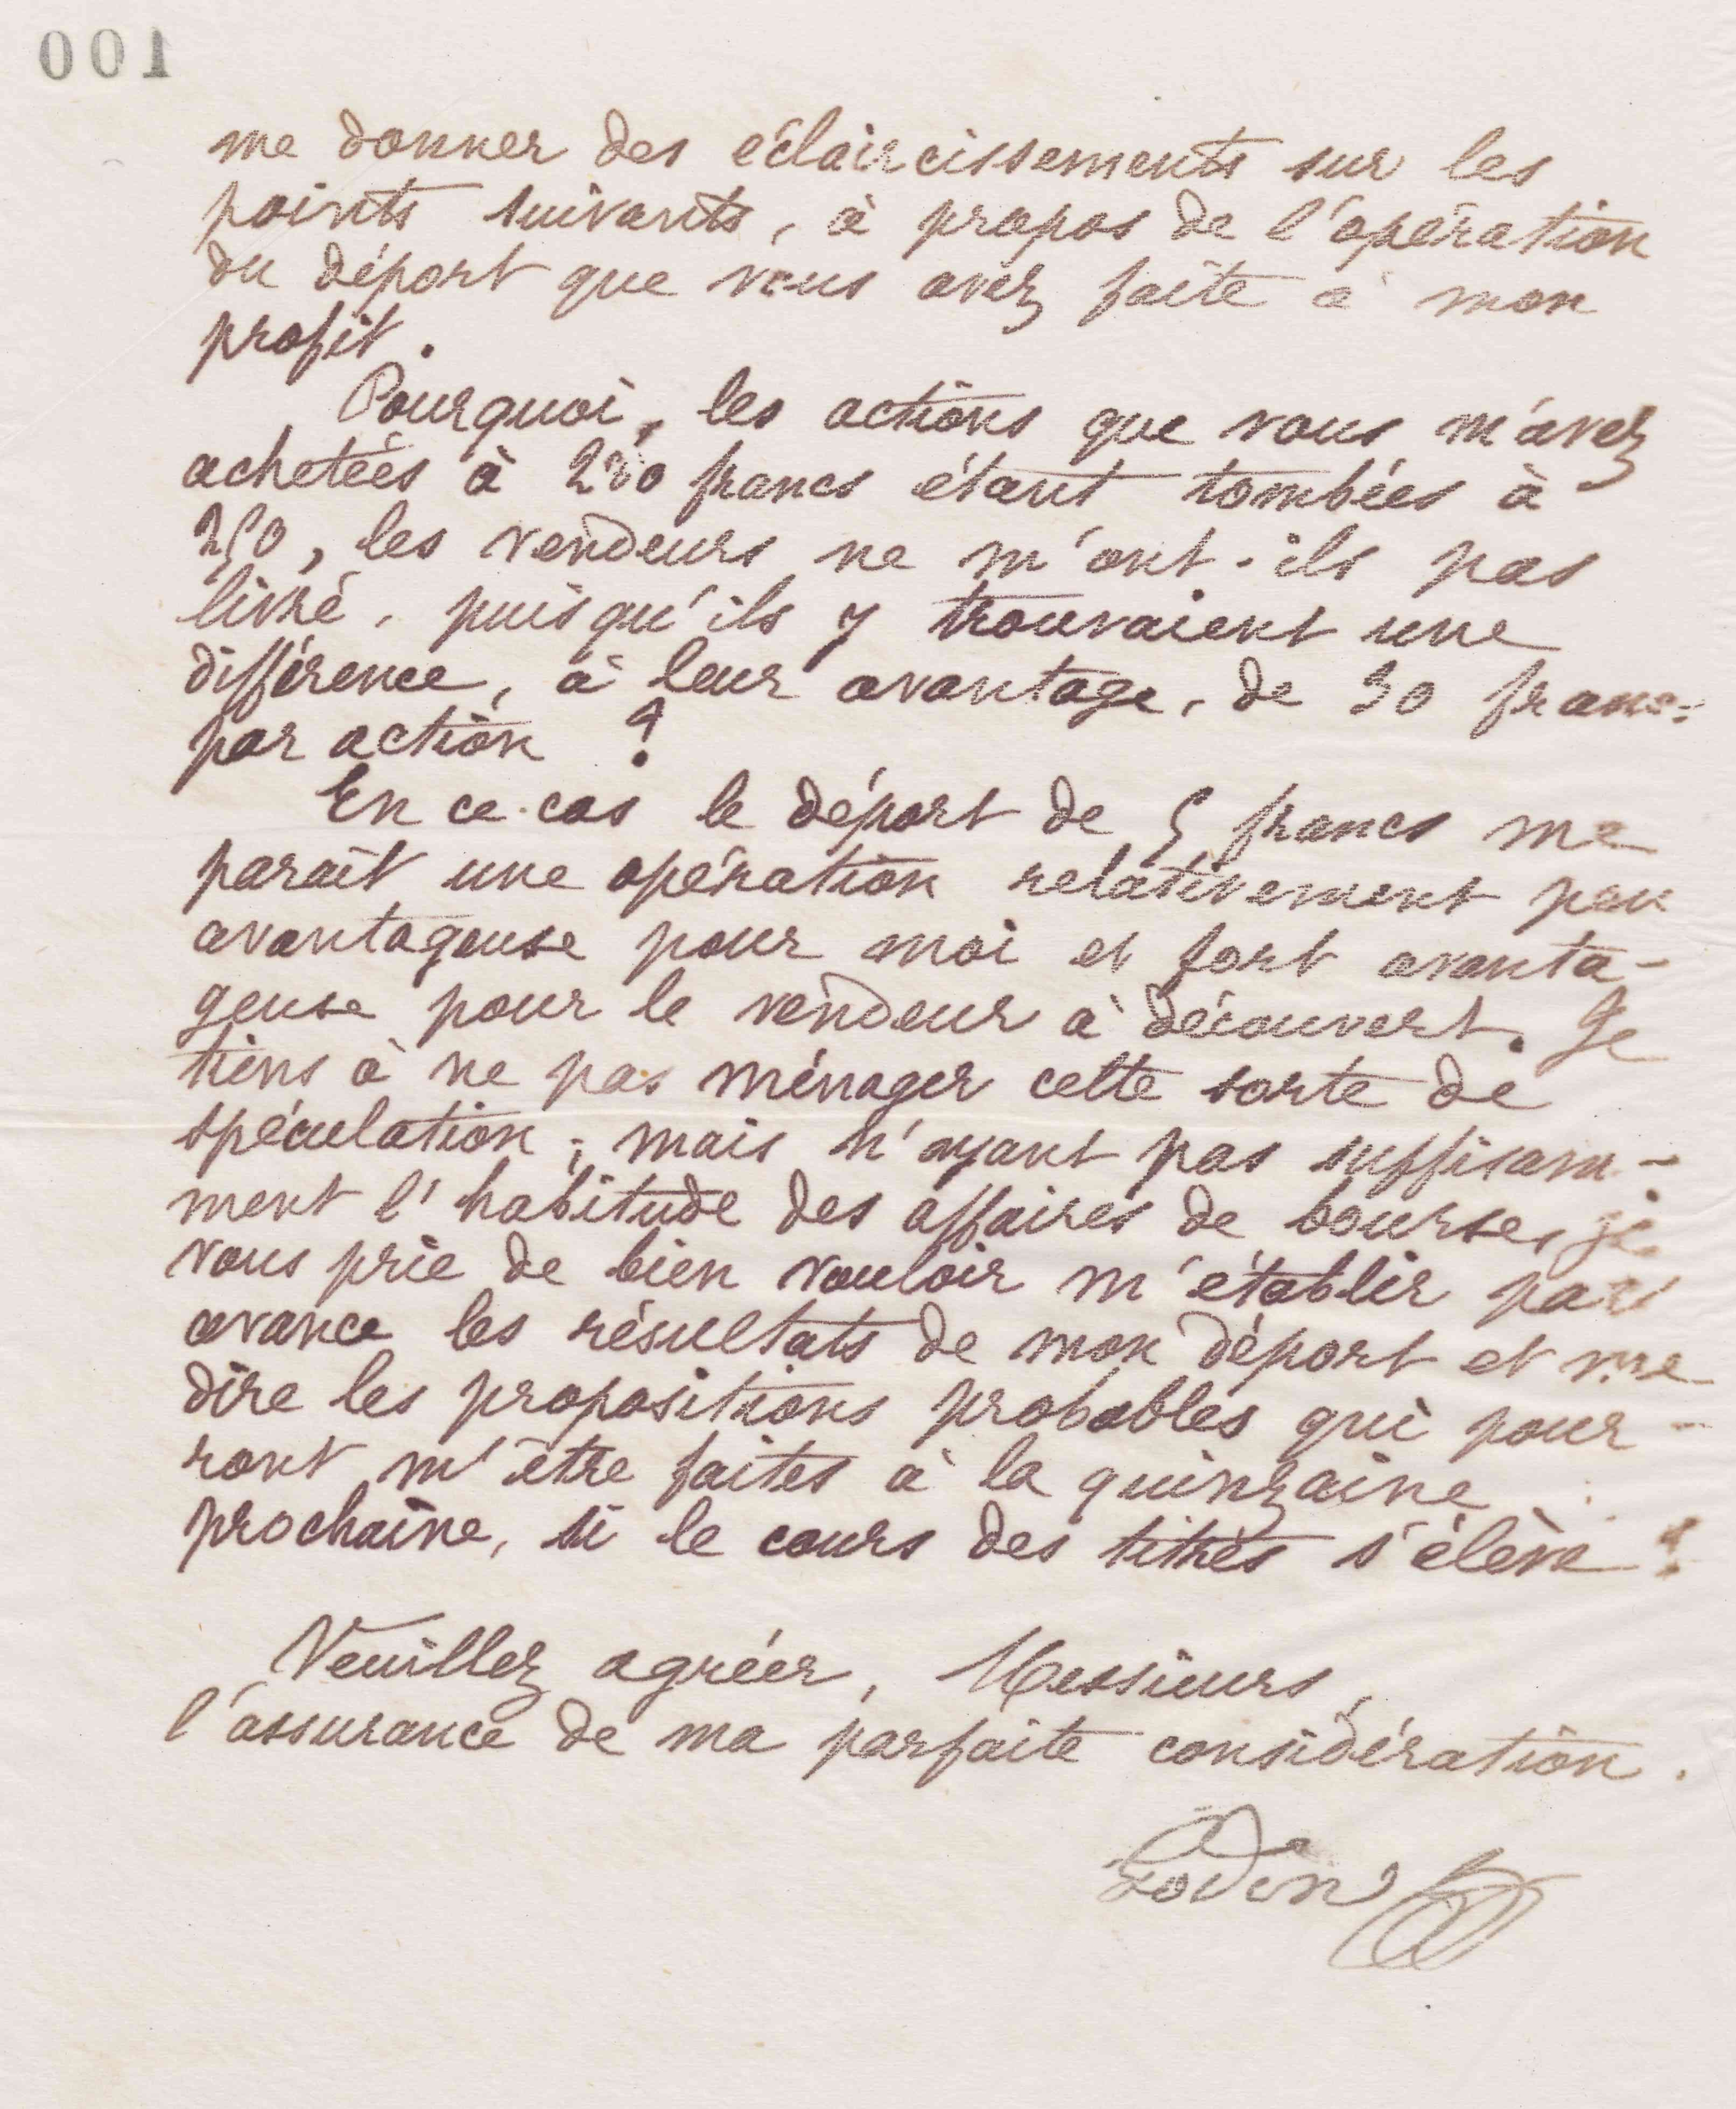 001
me donner des éclaircissements sur les
points suivants, à propos de l'opération
du déport que vous avez faite à mon
profit.
Pourquoi, les actions que vous m'avez
achetées à 280 francs étant tombées à
250, les vendeurs ne m'ont-ils pas
livré, puisqu'ils y trouvaient une
différence, à leur avantage, de 30 francs
par action ?
En ce cas le déport de 5 francs me
paraît une opération relativement peu
avantageuse pour moi et fort avanta-
geuse pour le vendeur à découvert. Je
tiens à ne pas ménager cette sorte de
spéculation ; mais n'ayant pas suffisam-
ment l'habitude des affaires de bourse, je
vous prie de bien vouloir m'établir par
avance les résultats de mon déport et me
dire les propositions probables qui pour-
ront m'être faites à la quinzaine
prochaine, si le cours des titres s'élève ?
Veuillez agréer, Messieurs,
l'assurance de ma parfaite considération.
Godin